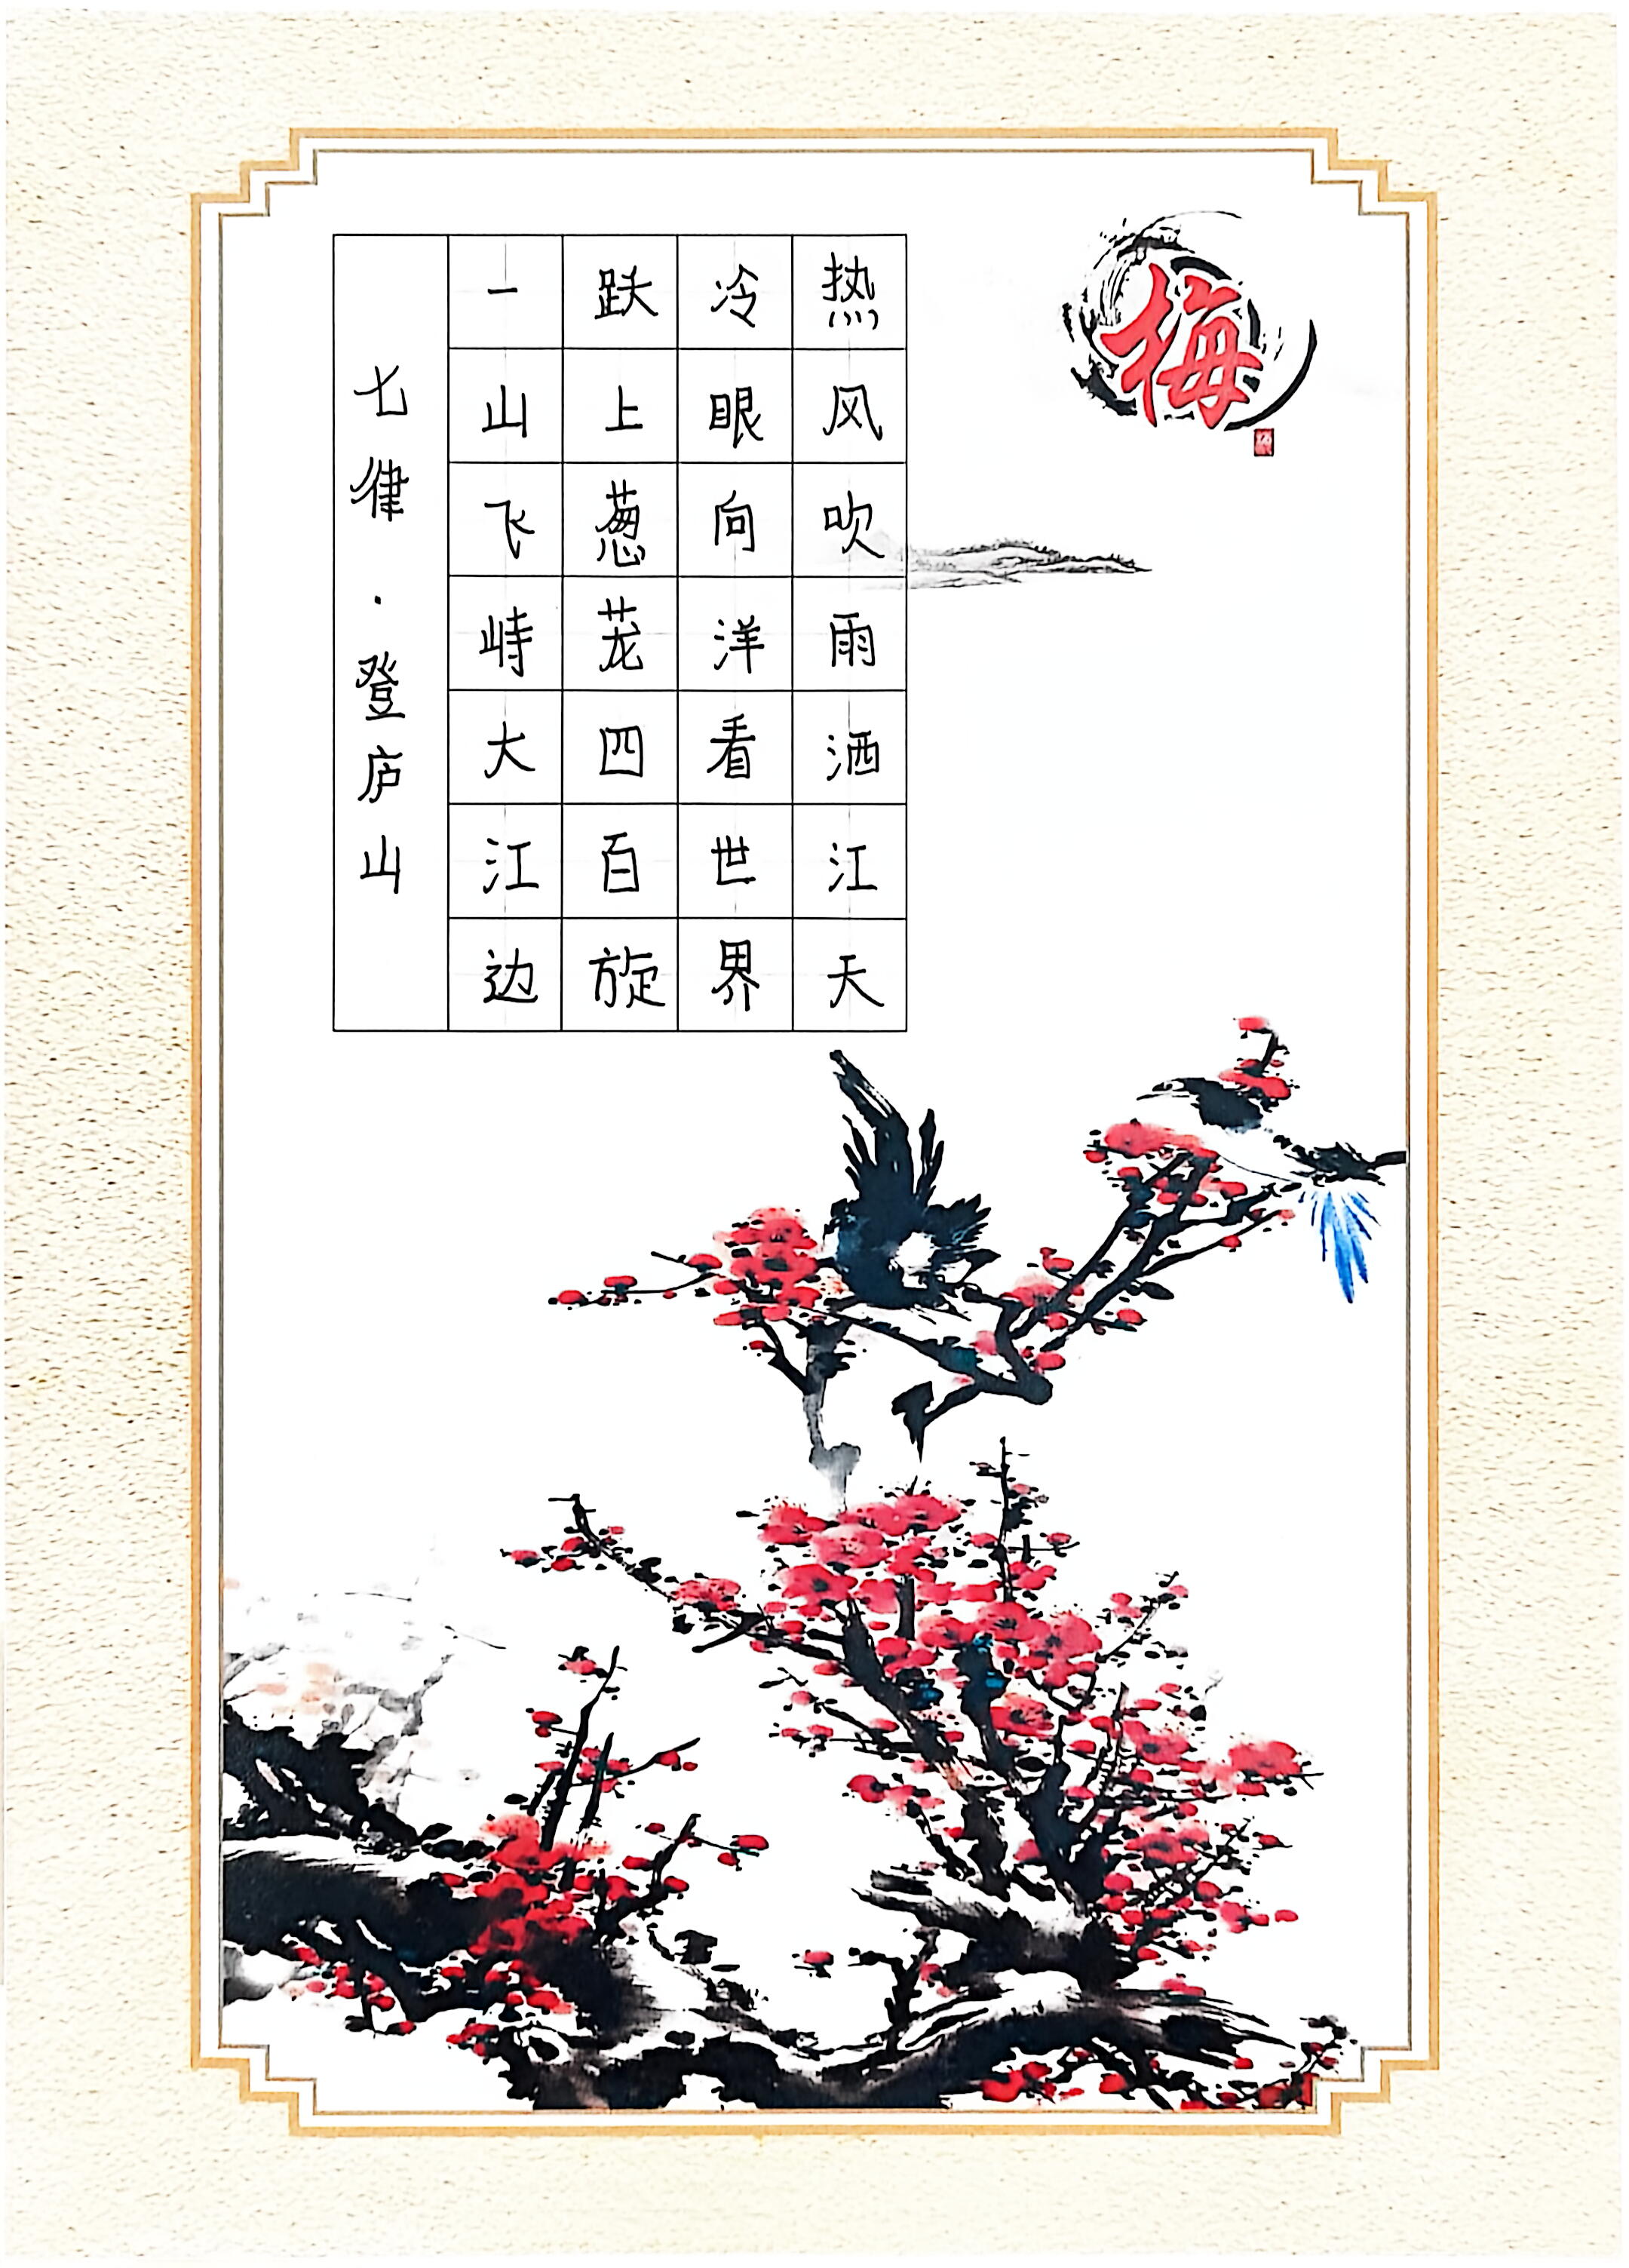 七律·登庐山
一山飞峙大江边
跃上葱茏四百旋
冷眼向洋看世界
热风吹雨洒江天
梅